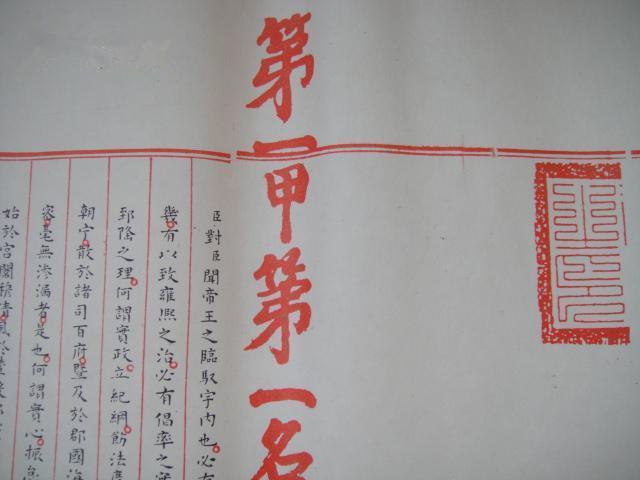 第一甲第一名
臣對臣聞帝王之臨馭宇內也必有
幾有以致雍熙之治必有倡率之實
郅隆之理何謂實政立紀綱飭法度
朝宁散於諸司百府暨及於郡國海
密毫無滲漏者是也何謂實心振怠
始於宮闈穆清風於